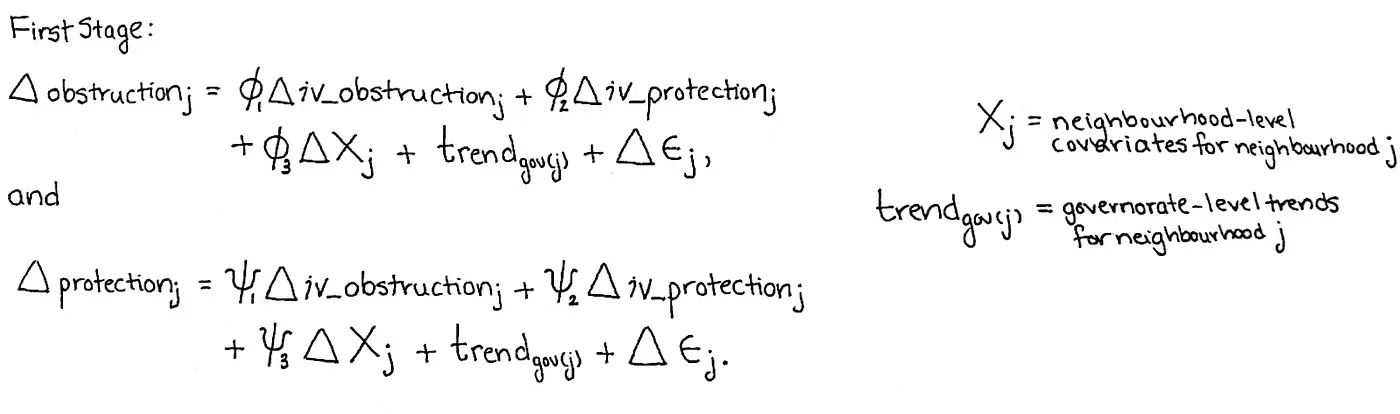 First Stage:
Δ obstruction_j = ϕ_1 Δ iv_obstruction_j + ϕ_2 Δ iv_protection_j
+ ϕ_3 Δ X_j + trend_gov(j) + Δ ϵ_j,
and
Δ protection_j = ψ_1 Δ iv_obstruction_j + ψ_2 Δ iv_protection_j
+ ψ_3 Δ X_j + trend_gov(j) + Δ ϵ_j.
X_j = neighbourhood-level
covariates for neighbourhood j
trend_gov(j) = governorate-level trends
for neighbourhood j